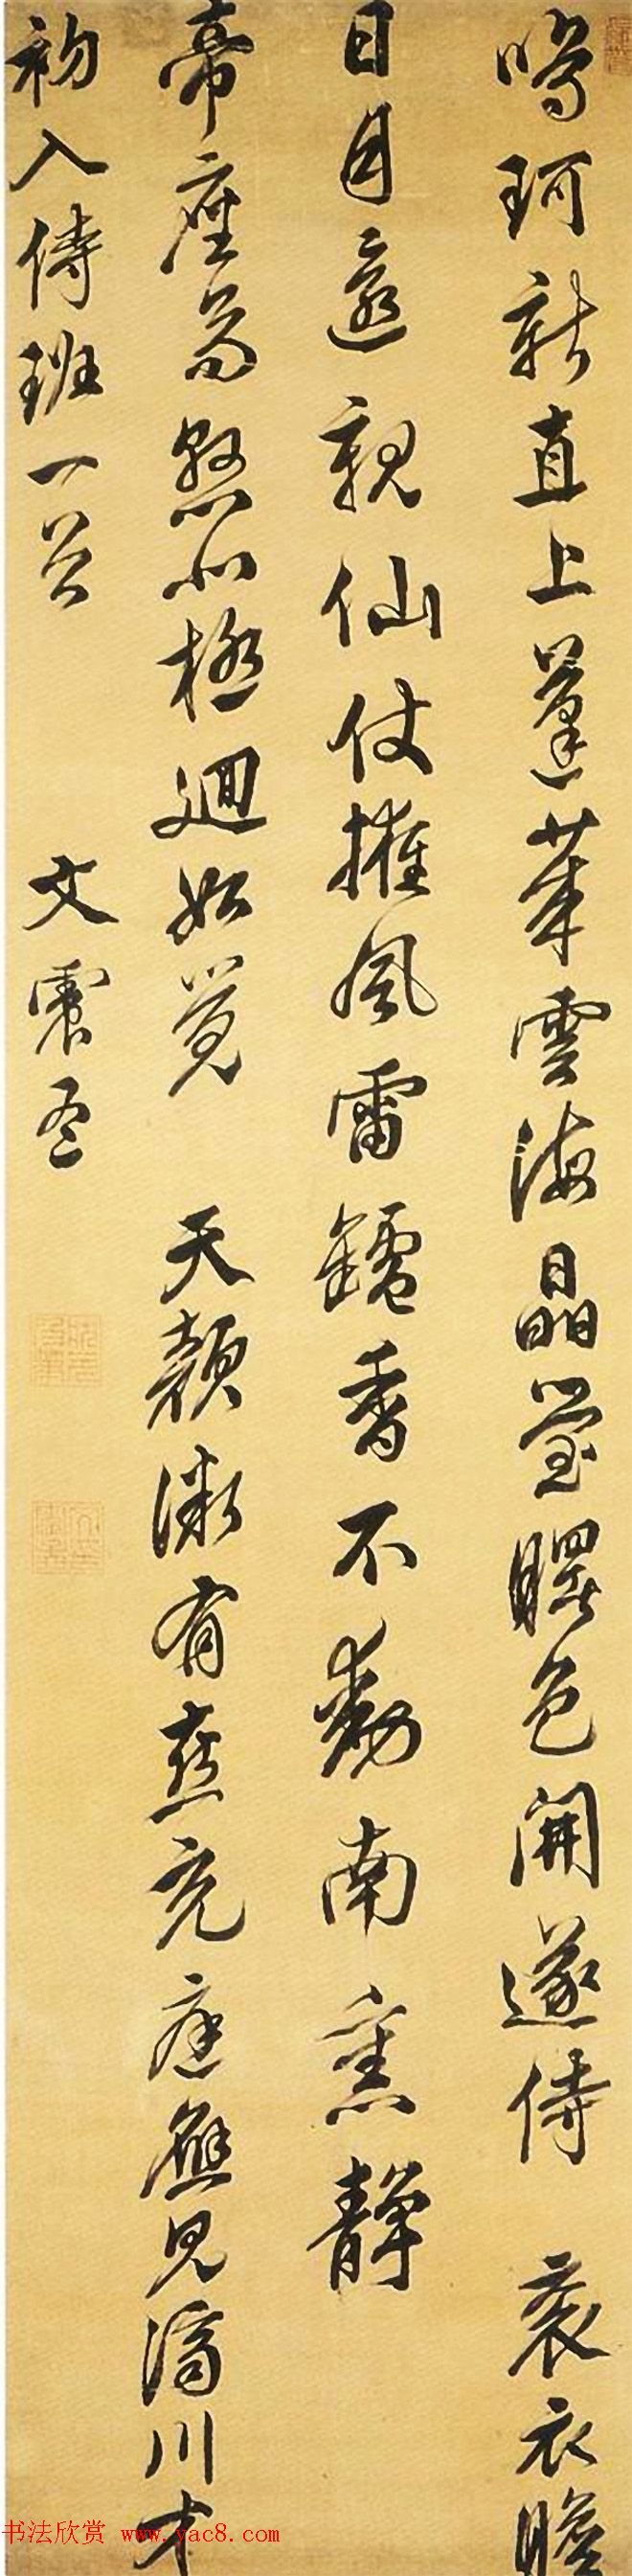 鳴珂新直上蓬萊雲海晶瑩曙色開遂侍 袞衣瞻
日月還親仙仗擁風雷鑪香不動南薰靜
帝座高懸北極迴如覺 天顏微有喜充庭應見濟川才
初入侍班一首 文震孟
书法欣赏 www.yac8.com